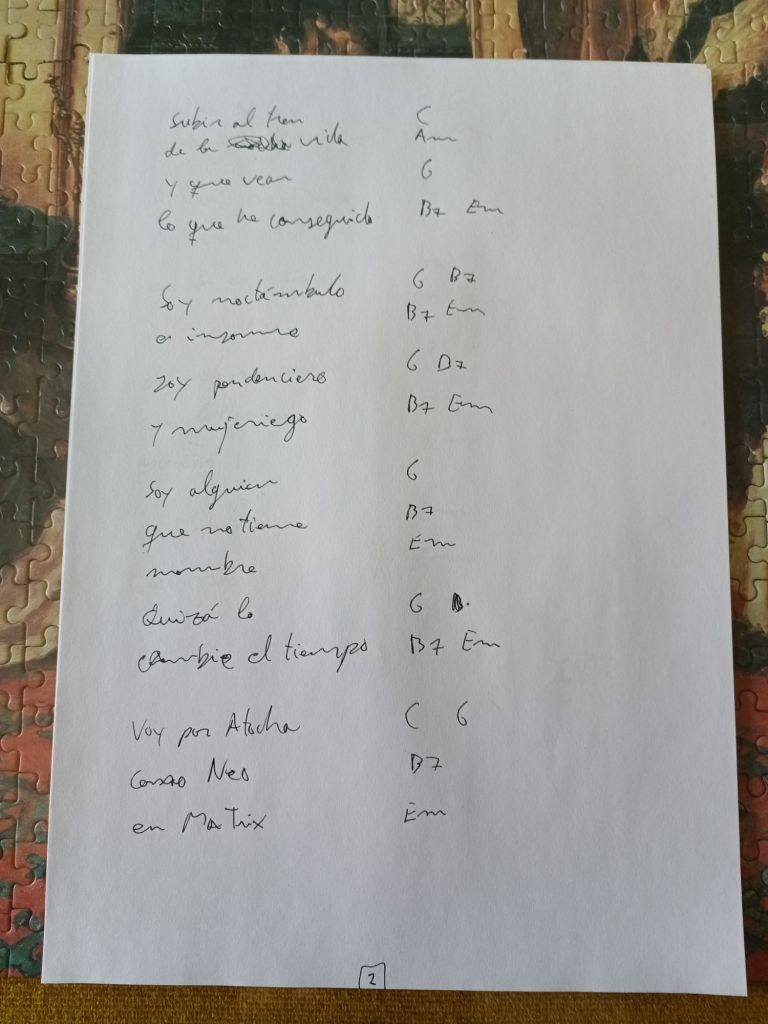 subir al tren C
de la vida Am
y que vean G
lo que he conseguido B7 Em
Soy noctámbulo G B7
e insomne B7 Em
Soy pendenciero G B7
y mujeriego B7 Em
Soy alguien G
que no tiene B7
nombre Em
Quizá lo G
cambie el tiempo B7 Em
Voy por Atocha C G
como Neo B7
en Matrix Em
2